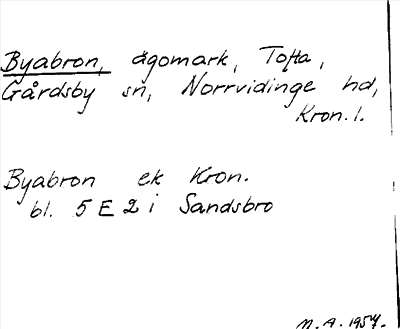 Byabron, ägomark, Tofta,
Gårdsby sn, Norrvidinge hd,
Kron. l.
Byabron ek Kron.
bl. 5 E 2 i Sandsbro
N. A. 1954.